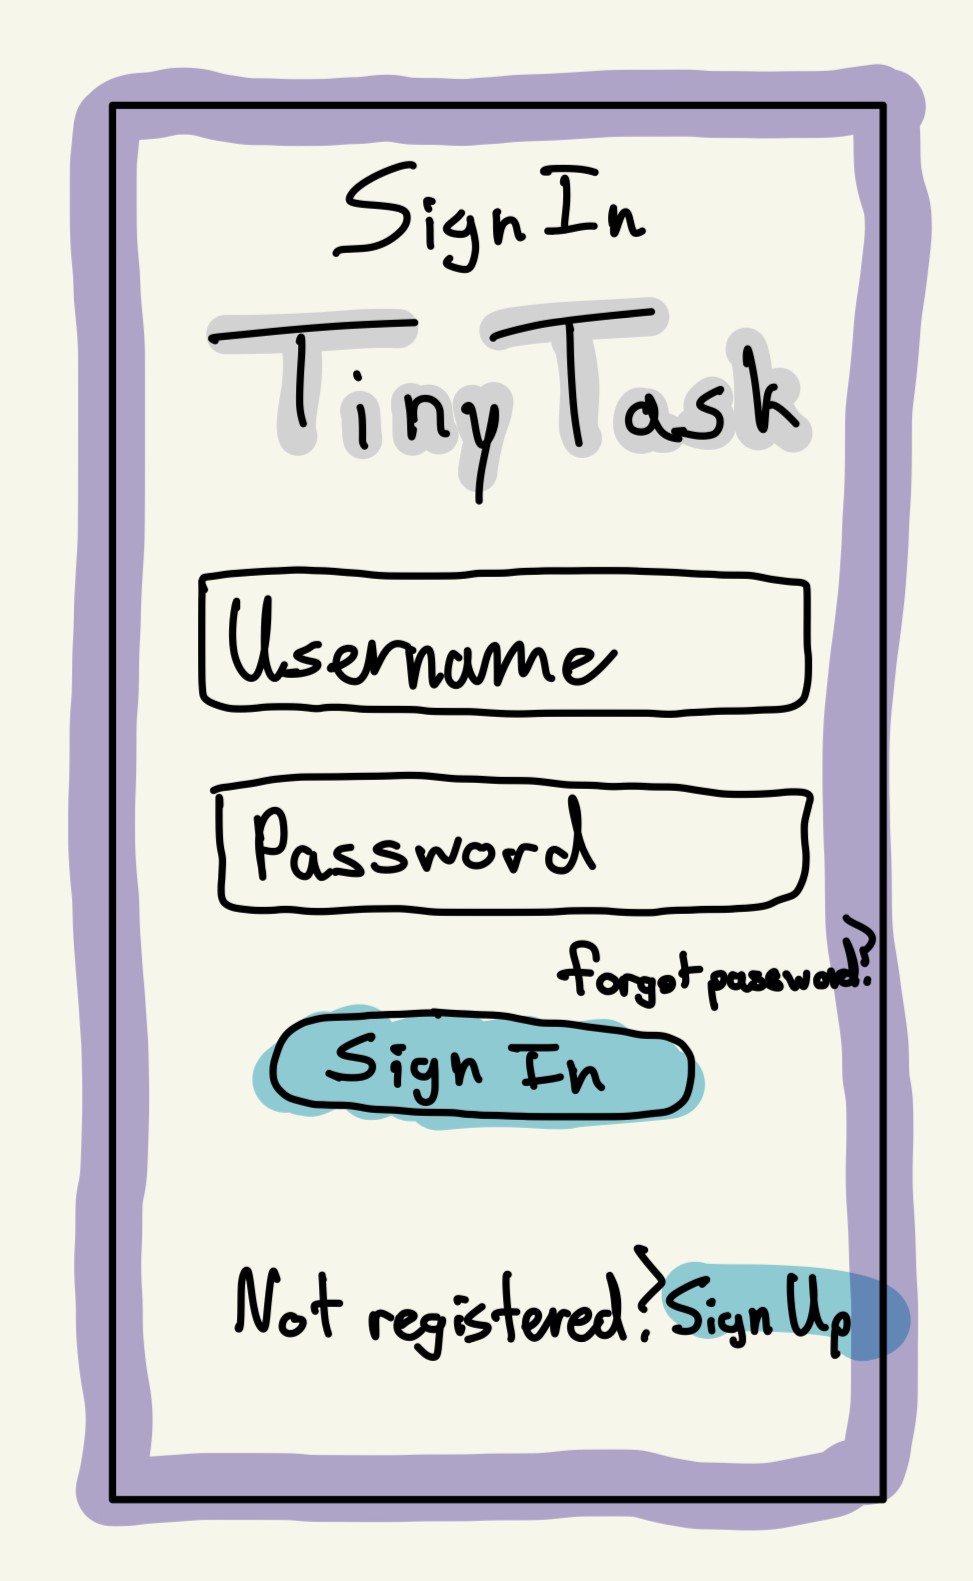 Sign In
Tiny Task
Username
Password
forgot password?
Sign In
Not registered? Sign Up